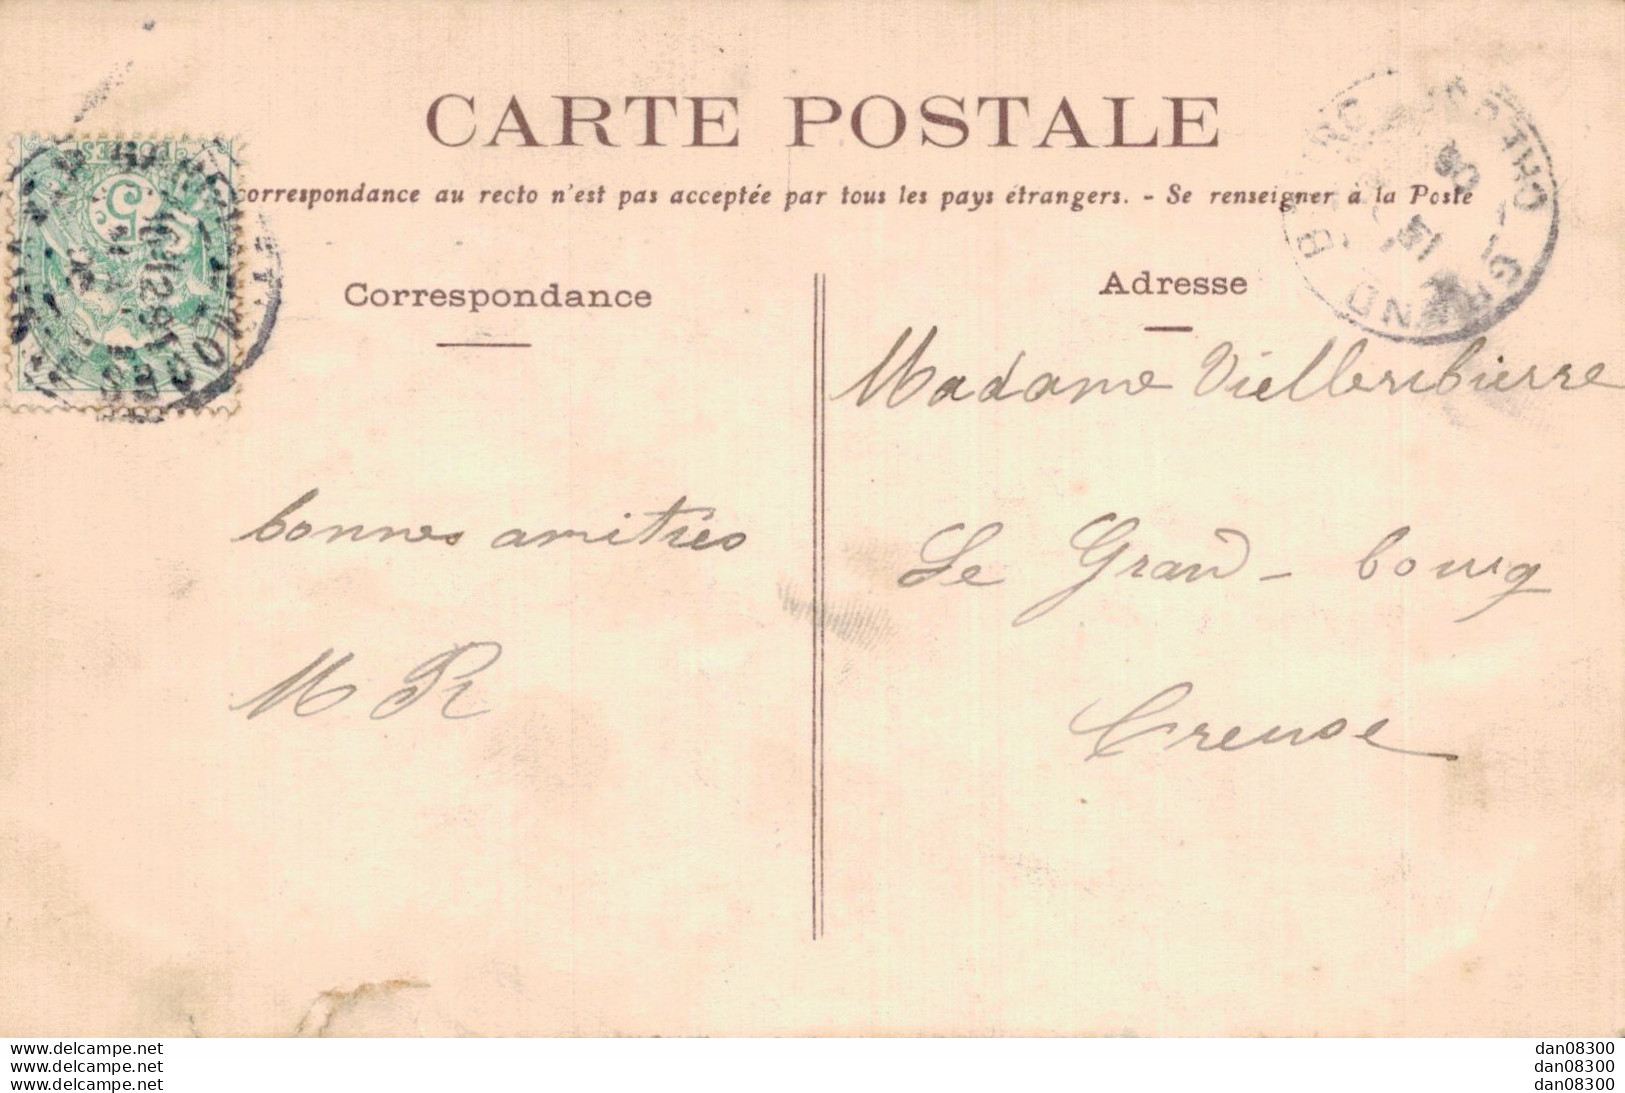 CARTE POSTALE
correspondance au recto n'est pas acceptée par tous les pays étrangers. - Se renseigner à la Poste
Correspondance
Adresse
bonnes amitiés
M R
Madame
Le Grand-bourg
Creuse
5
POSTES
GRAND B
www.delcampe.net
www.delcampe.net
www.delcampe.net
dan08300
dan08300
dan08300